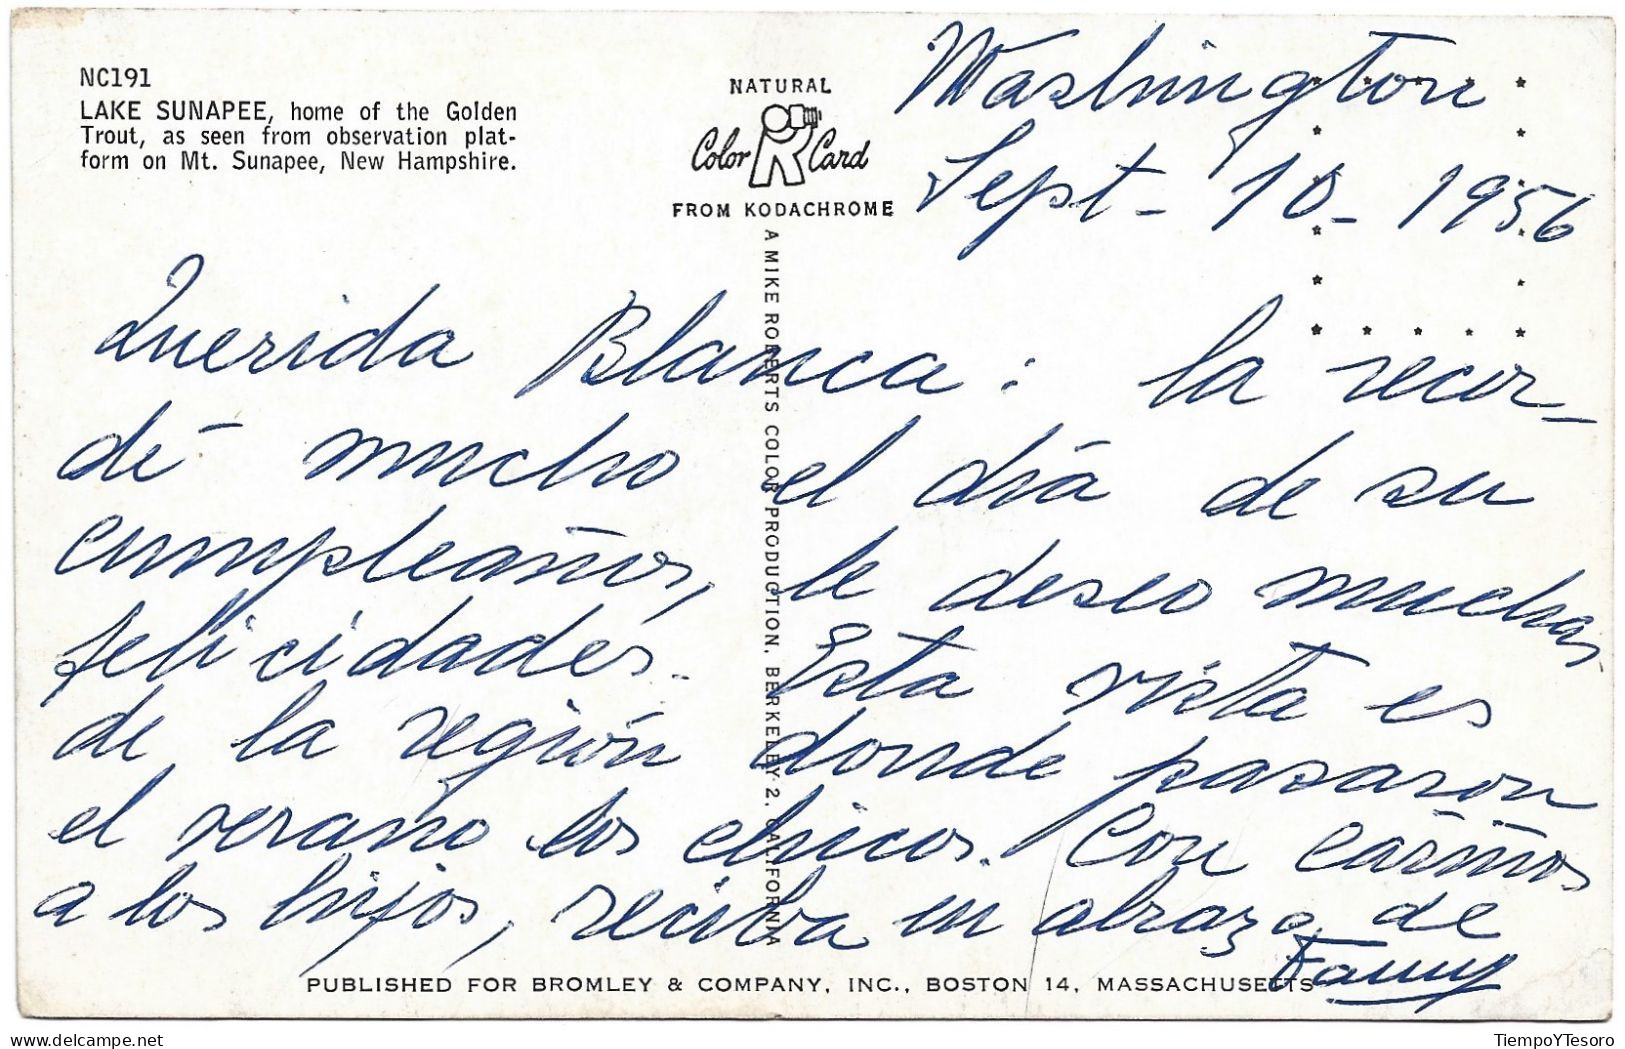 NC191
LAKE SUNAPEE, home of the Golden
Trout, as seen from observation plat-
form on Mt. Sunapee, New Hampshire.
NATURAL
Color Card
FROM KODACHROME
A MIKE ROBERTS COLOR PRODUCTION, BERKELEY 2, CALIFORNIA
Washington
Sept - 10 - 1956
Querida Blanca: la recor-
dé mucho el día de su
cumpleaños, le deseo muchas
felicidades. Esta vista es
de la región donde pasaron
el verano los chicos. Con cariños
a los hijos, reciba un abrazo de
Fanny
PUBLISHED FOR BROMLEY & COMPANY, INC., BOSTON 14, MASSACHUSETTS
delcampe.net
TiempoYTesoro